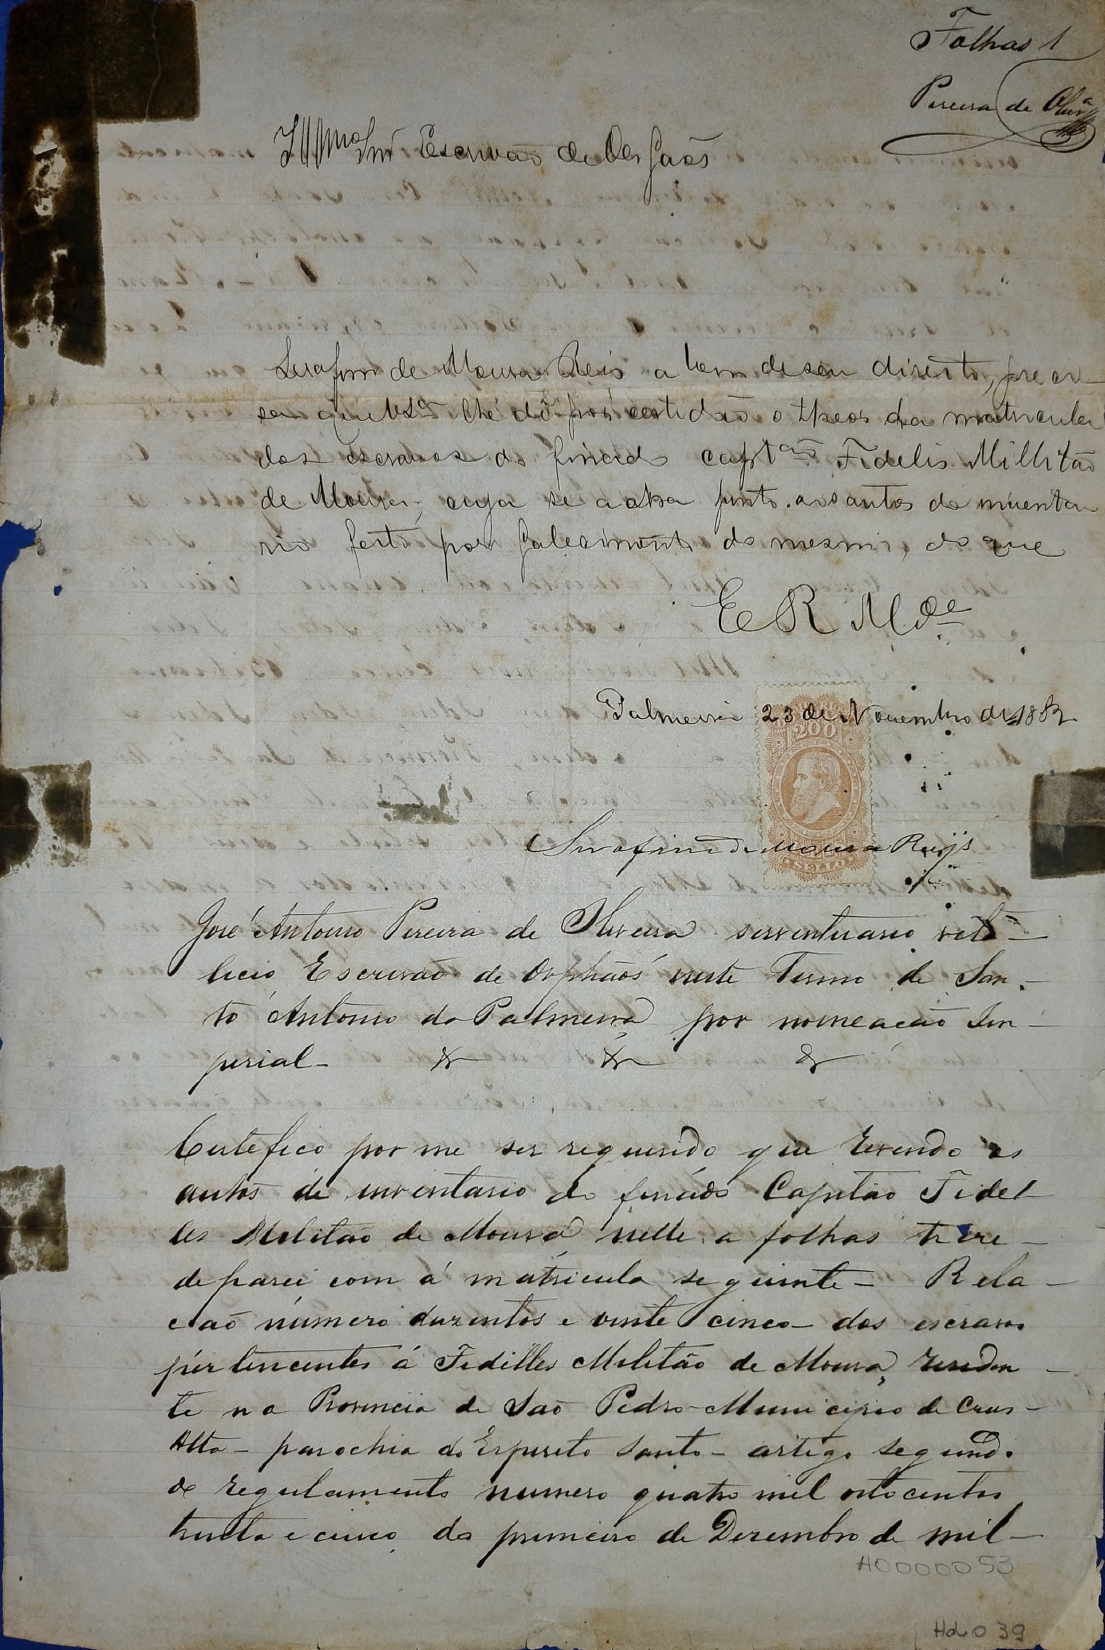 Folhas 1
Pereira de Olivª
Illmo Snr Escrivão de Orfaõs
Serafim de Moura Reis a bem de seu direito, preci-
sa que VSª lhe dê por certidão o theor da matricula
dos escravos do finado captam Fidelis Millitão
de Moura, cuja se acha junto aos autos do inventa
rio feito por falecimento do mesmo, do que
E R Mce
Palmeira 23 de Novembro de 1882
200
SELLO
Serafim de Moura Reijs
José Antonio Pereira de Oliveira serventuario vita-
licio Escrivaõ de Orphãos neste Termo de San-
to Antonio da Palmeira por nomeação Im-
perial - & & &
Certefico por me ser requerido que revendo os
autos de inventario do finado Capitão Fidel
les Militaõ de Moura nelle a folhas treze
deparei com á matricula seguinte - Rela-
caõ número duzentos e vinte cinco - dos escravos
pertencentes á Fidelles Militão de Moura, residen-
te na Provincia de Saõ Pedro - Municipio de Crus-
Alta - parochia do Espireto Santo - artigo segundo
do regulamento numero quatro mil oitocentos
trinta e cinco, do primeiro de Dezembro de mil-
H0000053
Hd 039